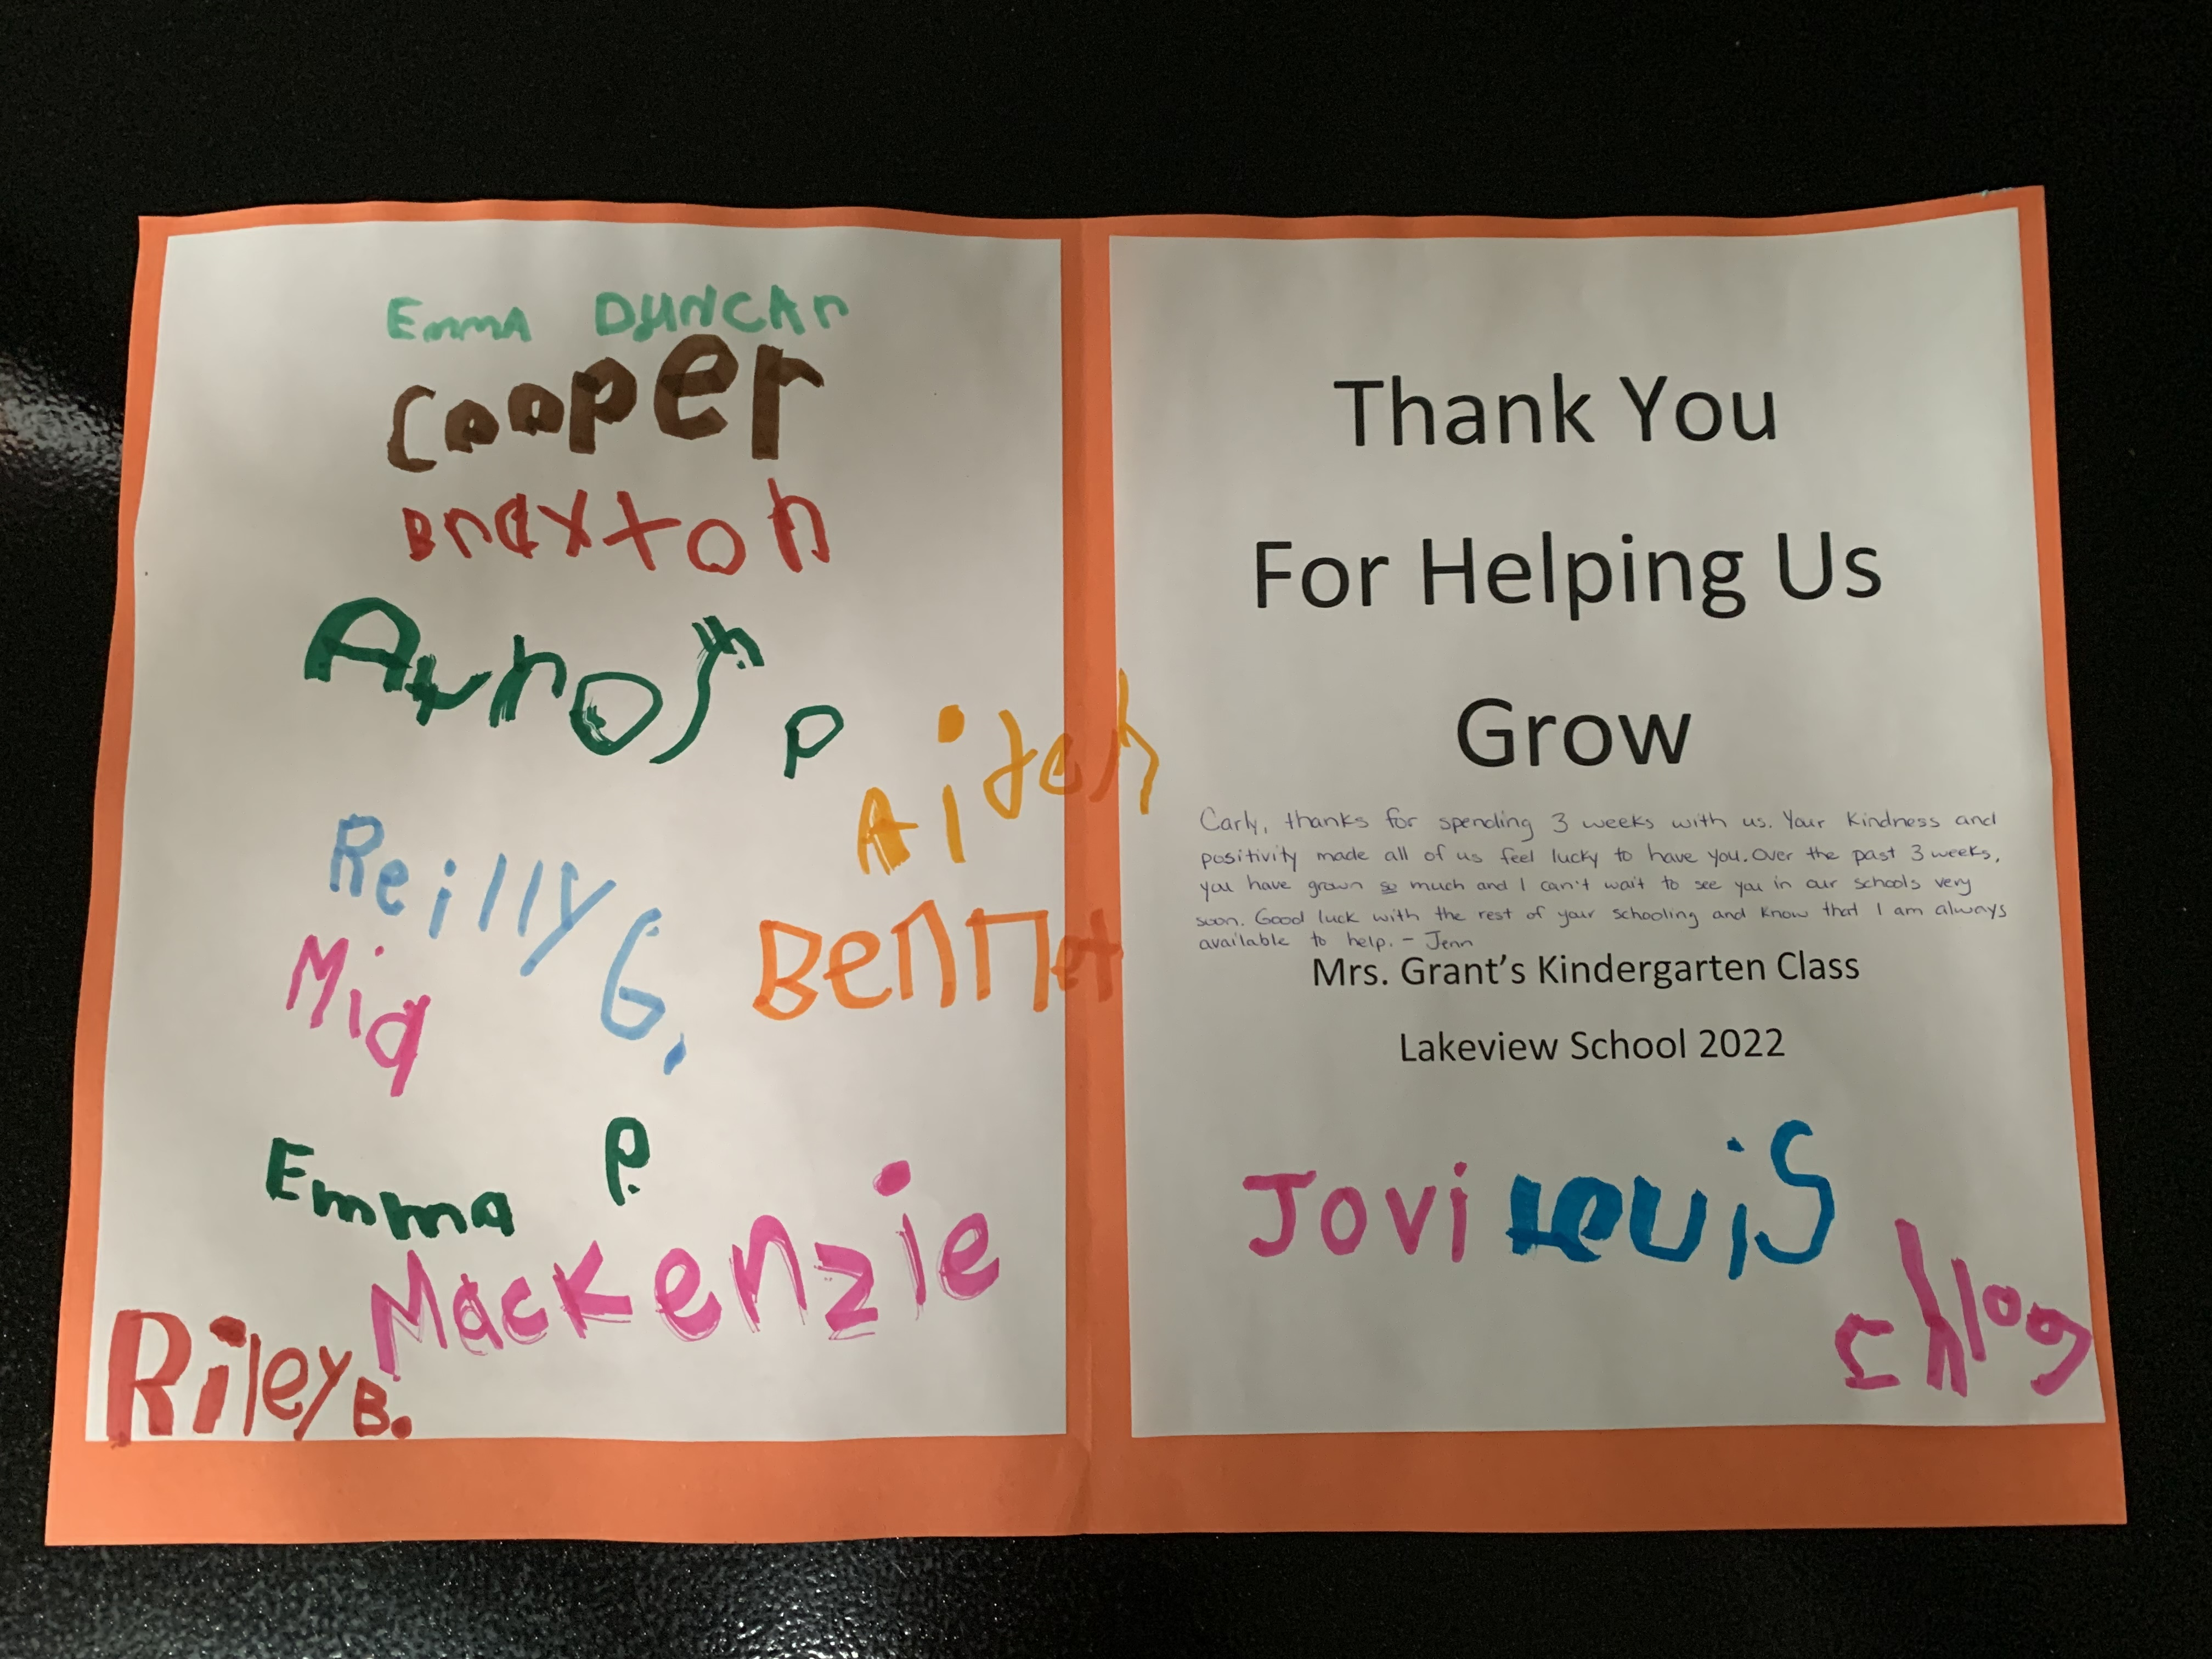 Emma DUNCAN
Cooper
Braxton
P
Aiden
Reilly G.
Bennet
Mia
Emma P.
Mackenzie
Riley B.
Thank You
For Helping Us
Grow
Carly, thanks for spending 3 weeks with us. Your kindness and
positivity made all of us feel lucky to have you. Over the past 3 weeks,
you have grown so much and I can't wait to see you in our schools very
soon. Good luck with the rest of your schooling and know that I am always
available to help. - Jenn
Mrs. Grant's Kindergarten Class
Lakeview School 2022
Jovi Lewis
Chloe